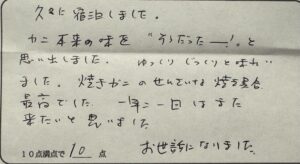 久々に宿泊しました。
カニ本来の味を"そうだったー!"と
思い出しました。 ゆっくりじっくりと味わい
ました。焼きガニのせんせいの焼き具合
最高でした。一年に一回はまた
来たいと思いました
お世話になりました。
10点満点で 10 点